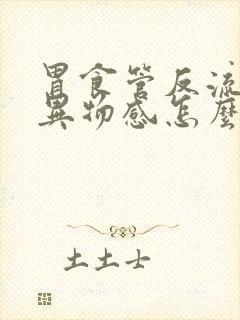 胃食管反流
异物感怎麽
土土士